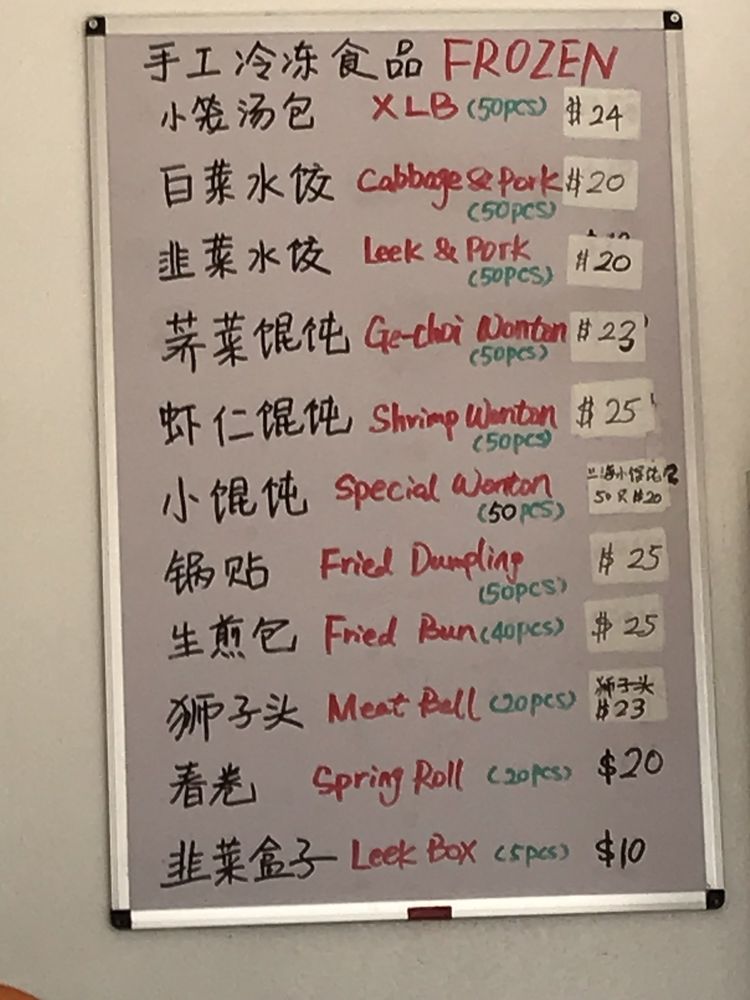 手工冷冻食品 FROZEN
小笼汤包 XLB (50pcs) $24
白菜水饺 Cabbage & Pork $20
(50pcs)
韭菜水饺 Leek & Pork $20
(50pcs)
荠菜馄饨 Ge-choi Wonton $23
(50pcs)
虾仁馄饨 Shrimp Wonton $25
(50pcs)
小馄饨 Special Wonton 上海小馄饨
(50pcs) 50只 $20
锅贴 Fried Dumpling $25
(50pcs)
生煎包 Fried Bun (40pcs) $25
狮子头 Meat Ball (20pcs) 狮子头
$23
春卷 Spring Roll (20pcs) $20
韭菜盒子 Leek Box (5pcs) $10